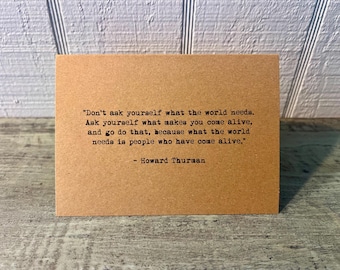 "Don't ask yourself what the world needs.
Ask yourself what makes you come alive,
and go do that, because what the world
needs is people who have come alive."
- Howard Thurman